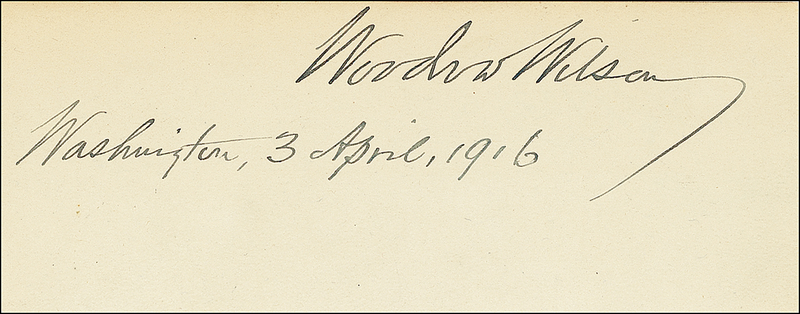 Woodrow Wilson
Washington, 3 April, 1916